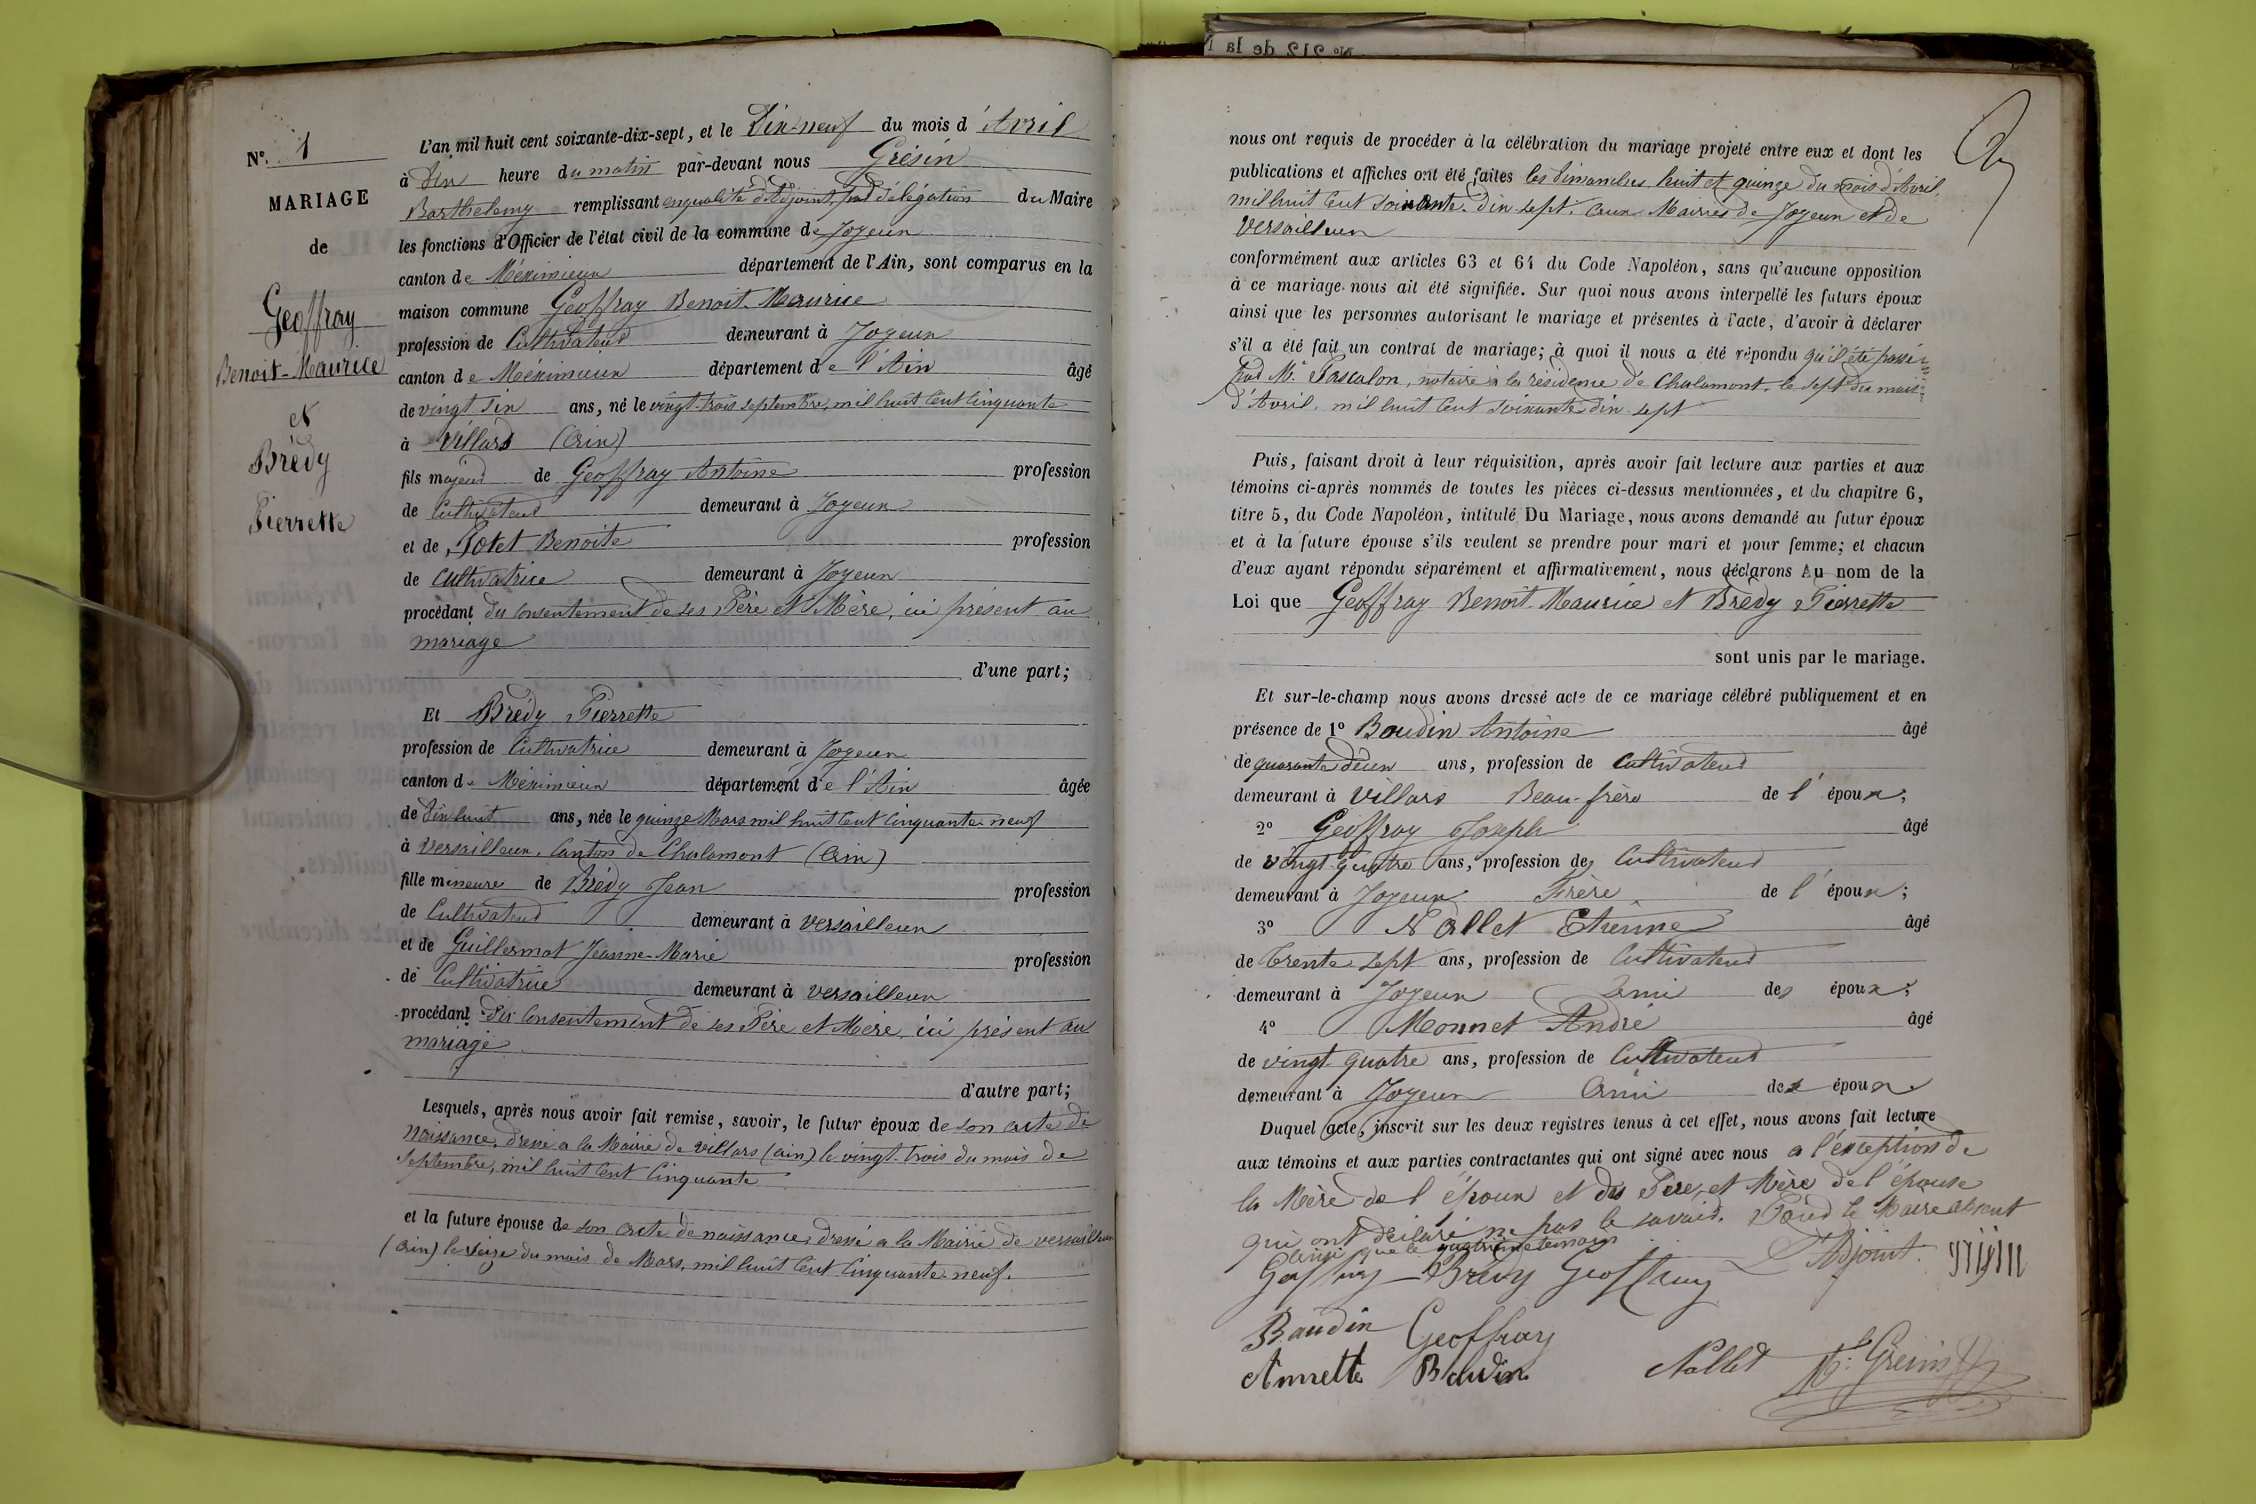 Nº 1
MARIAGE
de
Geoffray
Benoit-Maurice
et
Brédy
Pierrette
L'an mil huit cent soixante-dix-sept, et le Dix-neuf du mois d'Avril
à Dix heure du matin par-devant nous Grésin
Barthelemy remplissant en qualité d'Adjoint, par délégation du Maire
les fonctions d'Officier de l'état civil de la commune de Joyeux
canton de Méximieux département de l'Ain, sont comparus en la
maison commune Geoffray Benoit-Maurice
profession de Cultivateur demeurant à Joyeux
canton de Méximieux département de l'Ain âgé
de vingt six ans, né le vingt-trois septembre, mil huit cent cinquante
à Villars (Ain)
fils majeur de Geoffray Antoine profession
de Cultivateur demeurant à Joyeux
et de Potet Benoite profession
de Cultivatrice demeurant à Joyeux
procédant du consentement de ses Père et Mère, ici présent au
mariage
d'une part;
Et Brédy Pierrette
profession de Cultivatrice demeurant à Joyeux
canton de Méximieux département de l'Ain âgée
de Dix huit ans, née le quinze Mars mil huit cent cinquante-neuf
à Versailleux, Canton de Chalamont (Ain)
fille mineure de Brédy Jean profession
de Cultivateur demeurant à Versailleux
et de Guillermot Jeanne-Marie profession
de Cultivatrice demeurant à Versailleux
procédant du consentement de ses Père et Mère, ici présent au
mariage
d'autre part;
Lesquels, après nous avoir fait remise, savoir, le futur époux de son acte de
naissance, dressé a la Mairie de Villars (ain) le vingt-trois du mois de
septembre, mil huit cent cinquante
et la future épouse de son acte de naissance, dressé a la Mairie de Versailleux
(Ain) le seize du mois de Mars, mil huit cent cinquante-neuf.
Nº 212 de la
nous ont requis de procéder à la célébration du mariage projeté entre eux et dont les
publications et affiches ont été faites les Dimanches huit et quinze du mois d'Avril,
mil huit cent soixante-dix-sept, aux Mairies de Joyeux et de
Versailleux
conformément aux articles 63 et 64 du Code Napoléon, sans qu'aucune opposition
à ce mariage nous ait été signifiée. Sur quoi nous avons interpellé les futurs époux
ainsi que les personnes autorisant le mariage et présentes à l'acte, d'avoir à déclarer
s'il a été fait un contrat de mariage; à quoi il nous a été répondu qu'il été passé
Par Me Pascalon, notaire à la résidence de Chalamont, le sept du mois
d'Avril, mil huit cent soixante-dix-sept
Puis, faisant droit à leur réquisition, après avoir fait lecture aux parties et aux
témoins ci-après nommés de toutes les pièces ci-dessus mentionnées, et du chapitre 6,
titre 5, du Code Napoléon, intitulé Du Mariage, nous avons demandé au futur époux
et à la future épouse s'ils veulent se prendre pour mari et pour femme; et chacun
d'eux ayant répondu séparément et affirmativement, nous déclarons Au nom de la
Loi que Geoffray Benoit-Maurice et Brédy Pierrette
sont unis par le mariage.
Et sur-le-champ nous avons dressé acte de ce mariage célébré publiquement et en
présence de 1º Baudin Antoine âgé
de quarante deux ans, profession de Cultivateur
demeurant à Villars Beau-frère de l'époux;
2º Geoffray Joseph âgé
de vingt quatre ans, profession de Cultivateur
demeurant à Joyeux Frère de l'époux;
3º Nallet Etienne âgé
de Trente sept ans, profession de Cultivateur
demeurant à Joyeux ami des époux;
4º Monnet André âgé
de vingt quatre ans, profession de Cultivateur
demeurant à Joyeux Ami des époux.
Duquel acte, inscrit sur les deux registres tenus à cet effet, nous avons fait lecture
aux témoins et aux parties contractantes qui ont signé avec nous a l'exception de
la Mère de l'époux et des Père et Mère de l'épouse
qui ont déclaré ne pas le savoir. Pour le Maire absent
ainsi que le quatrième témoin L'Adjoint.
Geoffray Brédy Geoffray
Baudin Geoffray
Annette Baudin Nallet Bmy Grésin